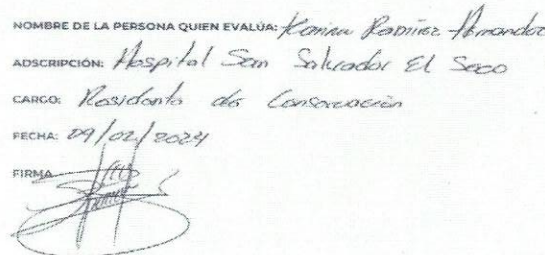 NOMBRE DE LA PERSONA QUIEN EVALÚA: Karina Ramirez Hernandez
ADSCRIPCIÓN: Hospital San Salvador El Seco
CARGO: Residente de Conservación
FECHA: 09/02/2024
FIRMA